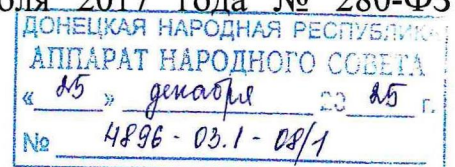 2017 года № 280-ФЗ
ДОНЕЦКАЯ НАРОДНАЯ РЕСПУБЛИКА
АППАРАТ НАРОДНОГО СОВЕТА
«25» декабря 2025 г.
№ 4896-03.1-08/1